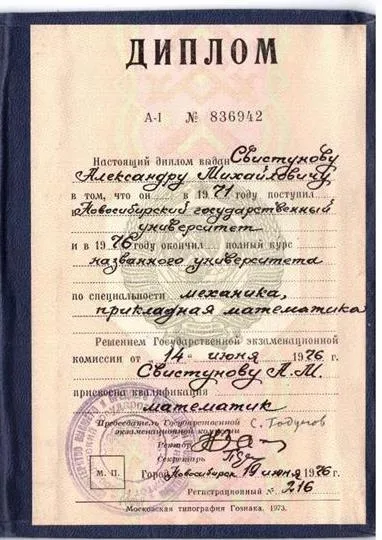 ДИПЛОМ
А-I № 836942
Настоящий диплом выдан Свистунову
Александру Михайловичу
в том, что он в 1971 году поступил
в Новосибирский государственный
университет
и в 1976 году окончил полный курс
названного университета
по специальности механика,
прикладная математика
Решением Государственной экзаменационной
комиссии от 14 июня 1976 г.
Свистунову А.М.
присвоена квалификация
математик
Председатель Государственной
экзаменационной комиссии С. Годунов
Ректор
Секретарь
М. П.
Город Новосибирск 19 июня 1976 г.
Регистрационный № 216
Московская типография Гознака. 1973.